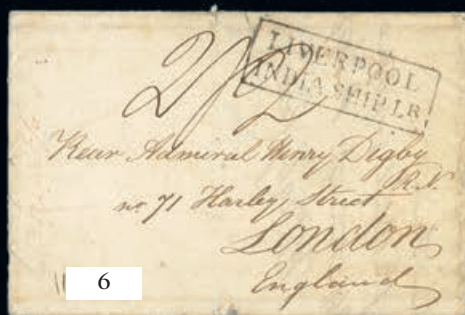 LIVERPOOL
INDIA SHIP LR
2/2
Rear Admiral Henry Digby
R.N.
no 71 Harley Street
London
England
6